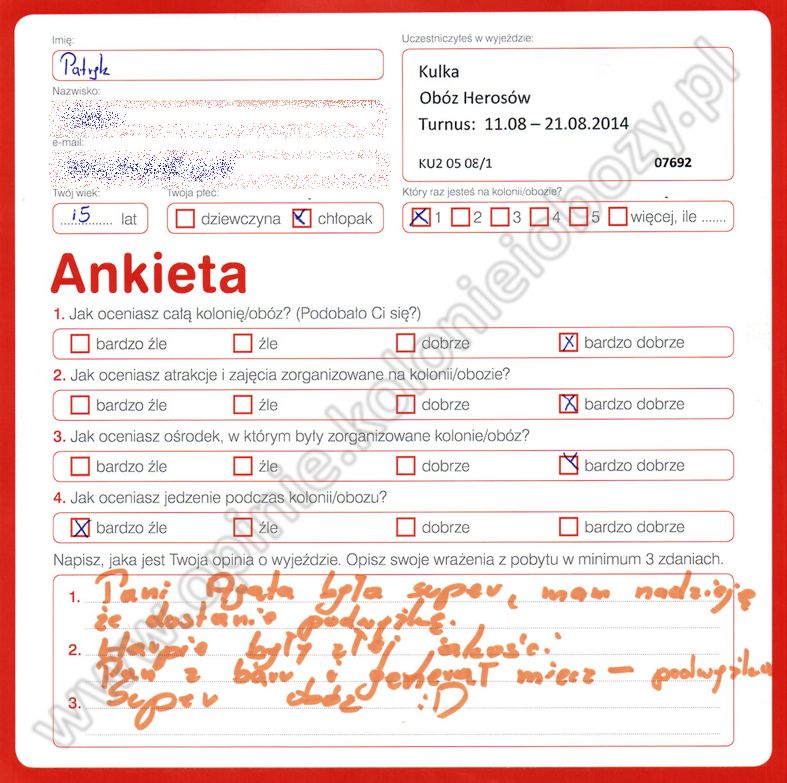 Imię:
Patryk
Uczestniczyłeś w wyjeździe:
Kulka
Obóz Herosów
Turnus: 11.08 – 21.08.2014
KU2 05 08/1 07692
Nazwisko:
e-mail:
Twój wiek:
15 lat
Twoja płeć:
dziewczyna chłopak
Który raz jesteś na kolonii/obozie?
1 2 3 4 5 więcej, ile .......
Ankieta
1. Jak oceniasz całą kolonię/obóz? (Podobało Ci się?)
bardzo źle źle dobrze bardzo dobrze
2. Jak oceniasz atrakcje i zajęcia zorganizowane na kolonii/obozie?
bardzo źle źle dobrze bardzo dobrze
3. Jak oceniasz ośrodek, w którym były zorganizowane kolonie/obóz?
bardzo źle źle dobrze bardzo dobrze
4. Jak oceniasz jedzenie podczas kolonii/obozu?
bardzo źle źle dobrze bardzo dobrze
Napisz, jaka jest Twoja opinia o wyjeździe. Opisz swoje wrażenia z pobytu w minimum 3 zdaniach.
1. Pani Agata była super, mam nadzieję
że dostanie podwyżkę.
2. Harpie były złej jakości
Pan z baru i generał miecz – podwyżka
3. Super obóz :D
www.opinie.kolonieiobozy.pl